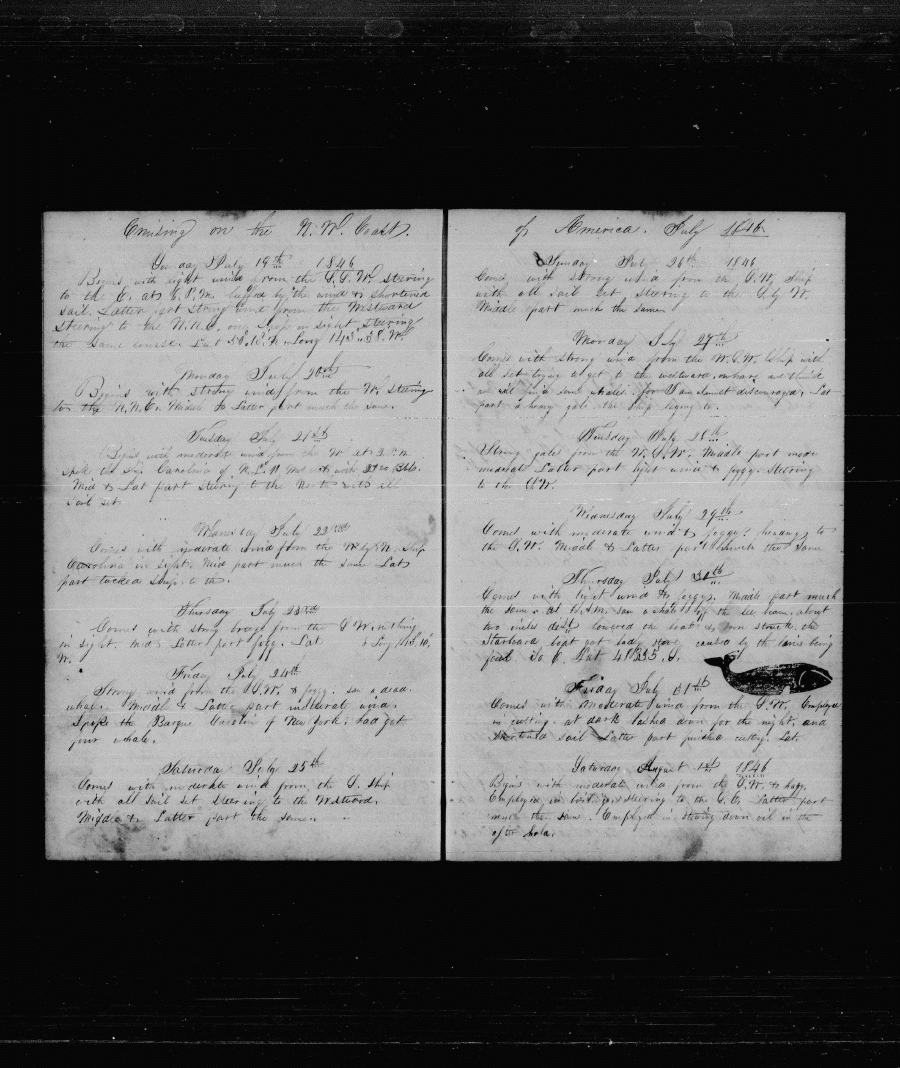 Cruising on the N.W. Coast.
Sunday July 19th 1846
Begins with light winds from the S.S.W. steering
to the E. at 6 P.M. luffed by the wind & shortened
sail. Latter part strong wind from the Westward
Steering to the N.N.E. one Ship in sight steering
the same course. Lat 56 Long 143
Monday July 20th
Begins with strong wind from the W. Steering
to the N.N.E. Middle & Latter part much the same.
Tuesday July 21st
Begins with moderate wind from the W at 2 P.M.
spoke the Ship Carolina of N.
Mid & Lat part Steering to the North with all
sail set
Wednesday July 22nd
Comes with moderate wind from the W by N. Ship
Carolina in sight. Mid part much the same Lat
part tacked Ship. to the.
Thursday July 23rd
Comes with strong breeze from the S W. nothing
in sight. Mid & Latter part foggy. Lat & Long
W.
Friday July 24th
Strong wind from the S.W. & foggy. saw a dead
whale. Middle & Latter part moderate wind.
Spoke the Barque of New York. had got
four whale.
Saturday July 25th
Comes with moderate wind from the S. Ship
with all sail set steering to the Westward.
Middle & Latter part the same.
of America. July 1846.
Sunday July 26th 1846
Comes with strong wind from the S.W. Ship
with all sail set steering to the W.
Middle part much the same
Monday July 27th
Comes with strong wind from the W.S.W. Ship with
all set trying to get to the westward. where we think
we will find some whales. for I am almost discouraged. Lat
part a heavy gale the Ship laying to.
Tuesday July 28th
Strong gales from the W.S.W. Middle part more
moderate Latter part light wind & foggy. Steering
to the S.W.
Wednesday July 29th
Comes with moderate wind & foggy. heading to
the S.W. Middle & Latter part much the same
Thursday July 30th
Comes with light wind & foggy. Middle part much
the same. at A.M. saw a whale off the lee beam. about
two miles dist lowered the boats & soon struck. the
Starboard boat got badly stove caused by the lines being
foul. So E. Lat
Friday July 31st
Comes with Moderate wind from the S.W. Employed
in cutting. at dark lashed down for the night, and
shortened sail Latter part finished cutting. Lat.
Saturday August 1st 1846
Begins with moderate wind from the S.W. & foggy.
Employed in boiling. steering to the S.E. Latter part
much the same. Employed in stowing down oil in the
after hold.